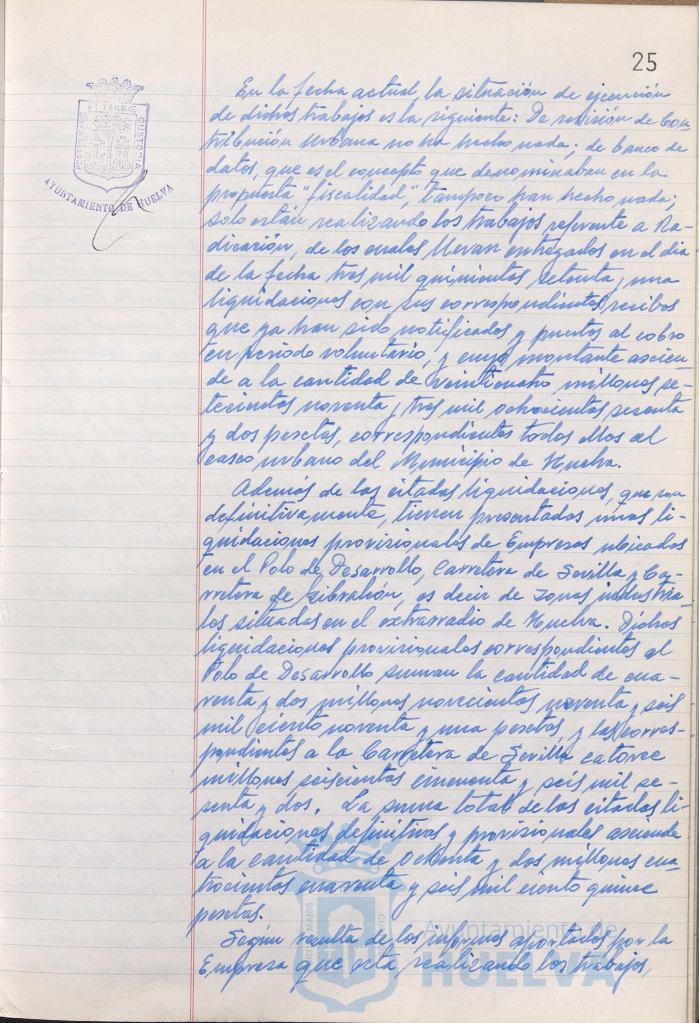 25
PORTUS MARIS
ET TERRE
CUSTODIA
AYUNTAMIENTO DE HUELVA
En la fecha actual, la situación de ejecución
de dichos trabajos es la siguiente: De revisión de Con-
tribución Urbana no ha hecho nada; de banco de
datos, que es el concepto que denominaban en la
propuesta "fiscalidad", tampoco han hecho nada;
solo están realizando los trabajos referente a Ra-
dicación, de los cuales llevan entregados en el dia
de la fecha tres mil quinientos setenta y una
liquidaciones con sus correspondientes recibos
que ya han sido notificados y puestos al cobro
en periodo voluntario, y cuyo montante ascien-
de a la cantidad de veinticuatro millones se-
tecientos noventa y tres mil ochocientos sesenta
y dos pesetas, correspondientes todos ellos al
casco urbano del Municipio de Huelva.
Además de las citadas liquidaciones, que son
definitivamente, tienen presentadas unas li-
quidaciones provisionales de Empresas ubicadas
en el Polo de Desarrollo, Carretera de Sevilla y Ca-
rretera de Gibraleón, es decir de zonas industria-
les situadas en el extrarradio de Huelva. Dichas
liquidaciones provisionales correspondientes al
Polo de Desarrollo suman la cantidad de cua-
renta y dos millones novecientos noventa y seis
mil ciento noventa y una pesetas, y las corres-
pondientes a la Carretera de Sevilla catorce
millones seiscientos cincuenta y seis mil se-
senta y dos. La suma total de las citadas li-
quidaciones definitivas y provisionales asciende
a la cantidad de ochenta y dos millones cua-
trocientos cuarenta y seis mil ciento quince
pesetas.
Según resulta de los informes aportados por la
Empresa que esta realizando los trabajos,
Ayuntamiento de
HUELVA